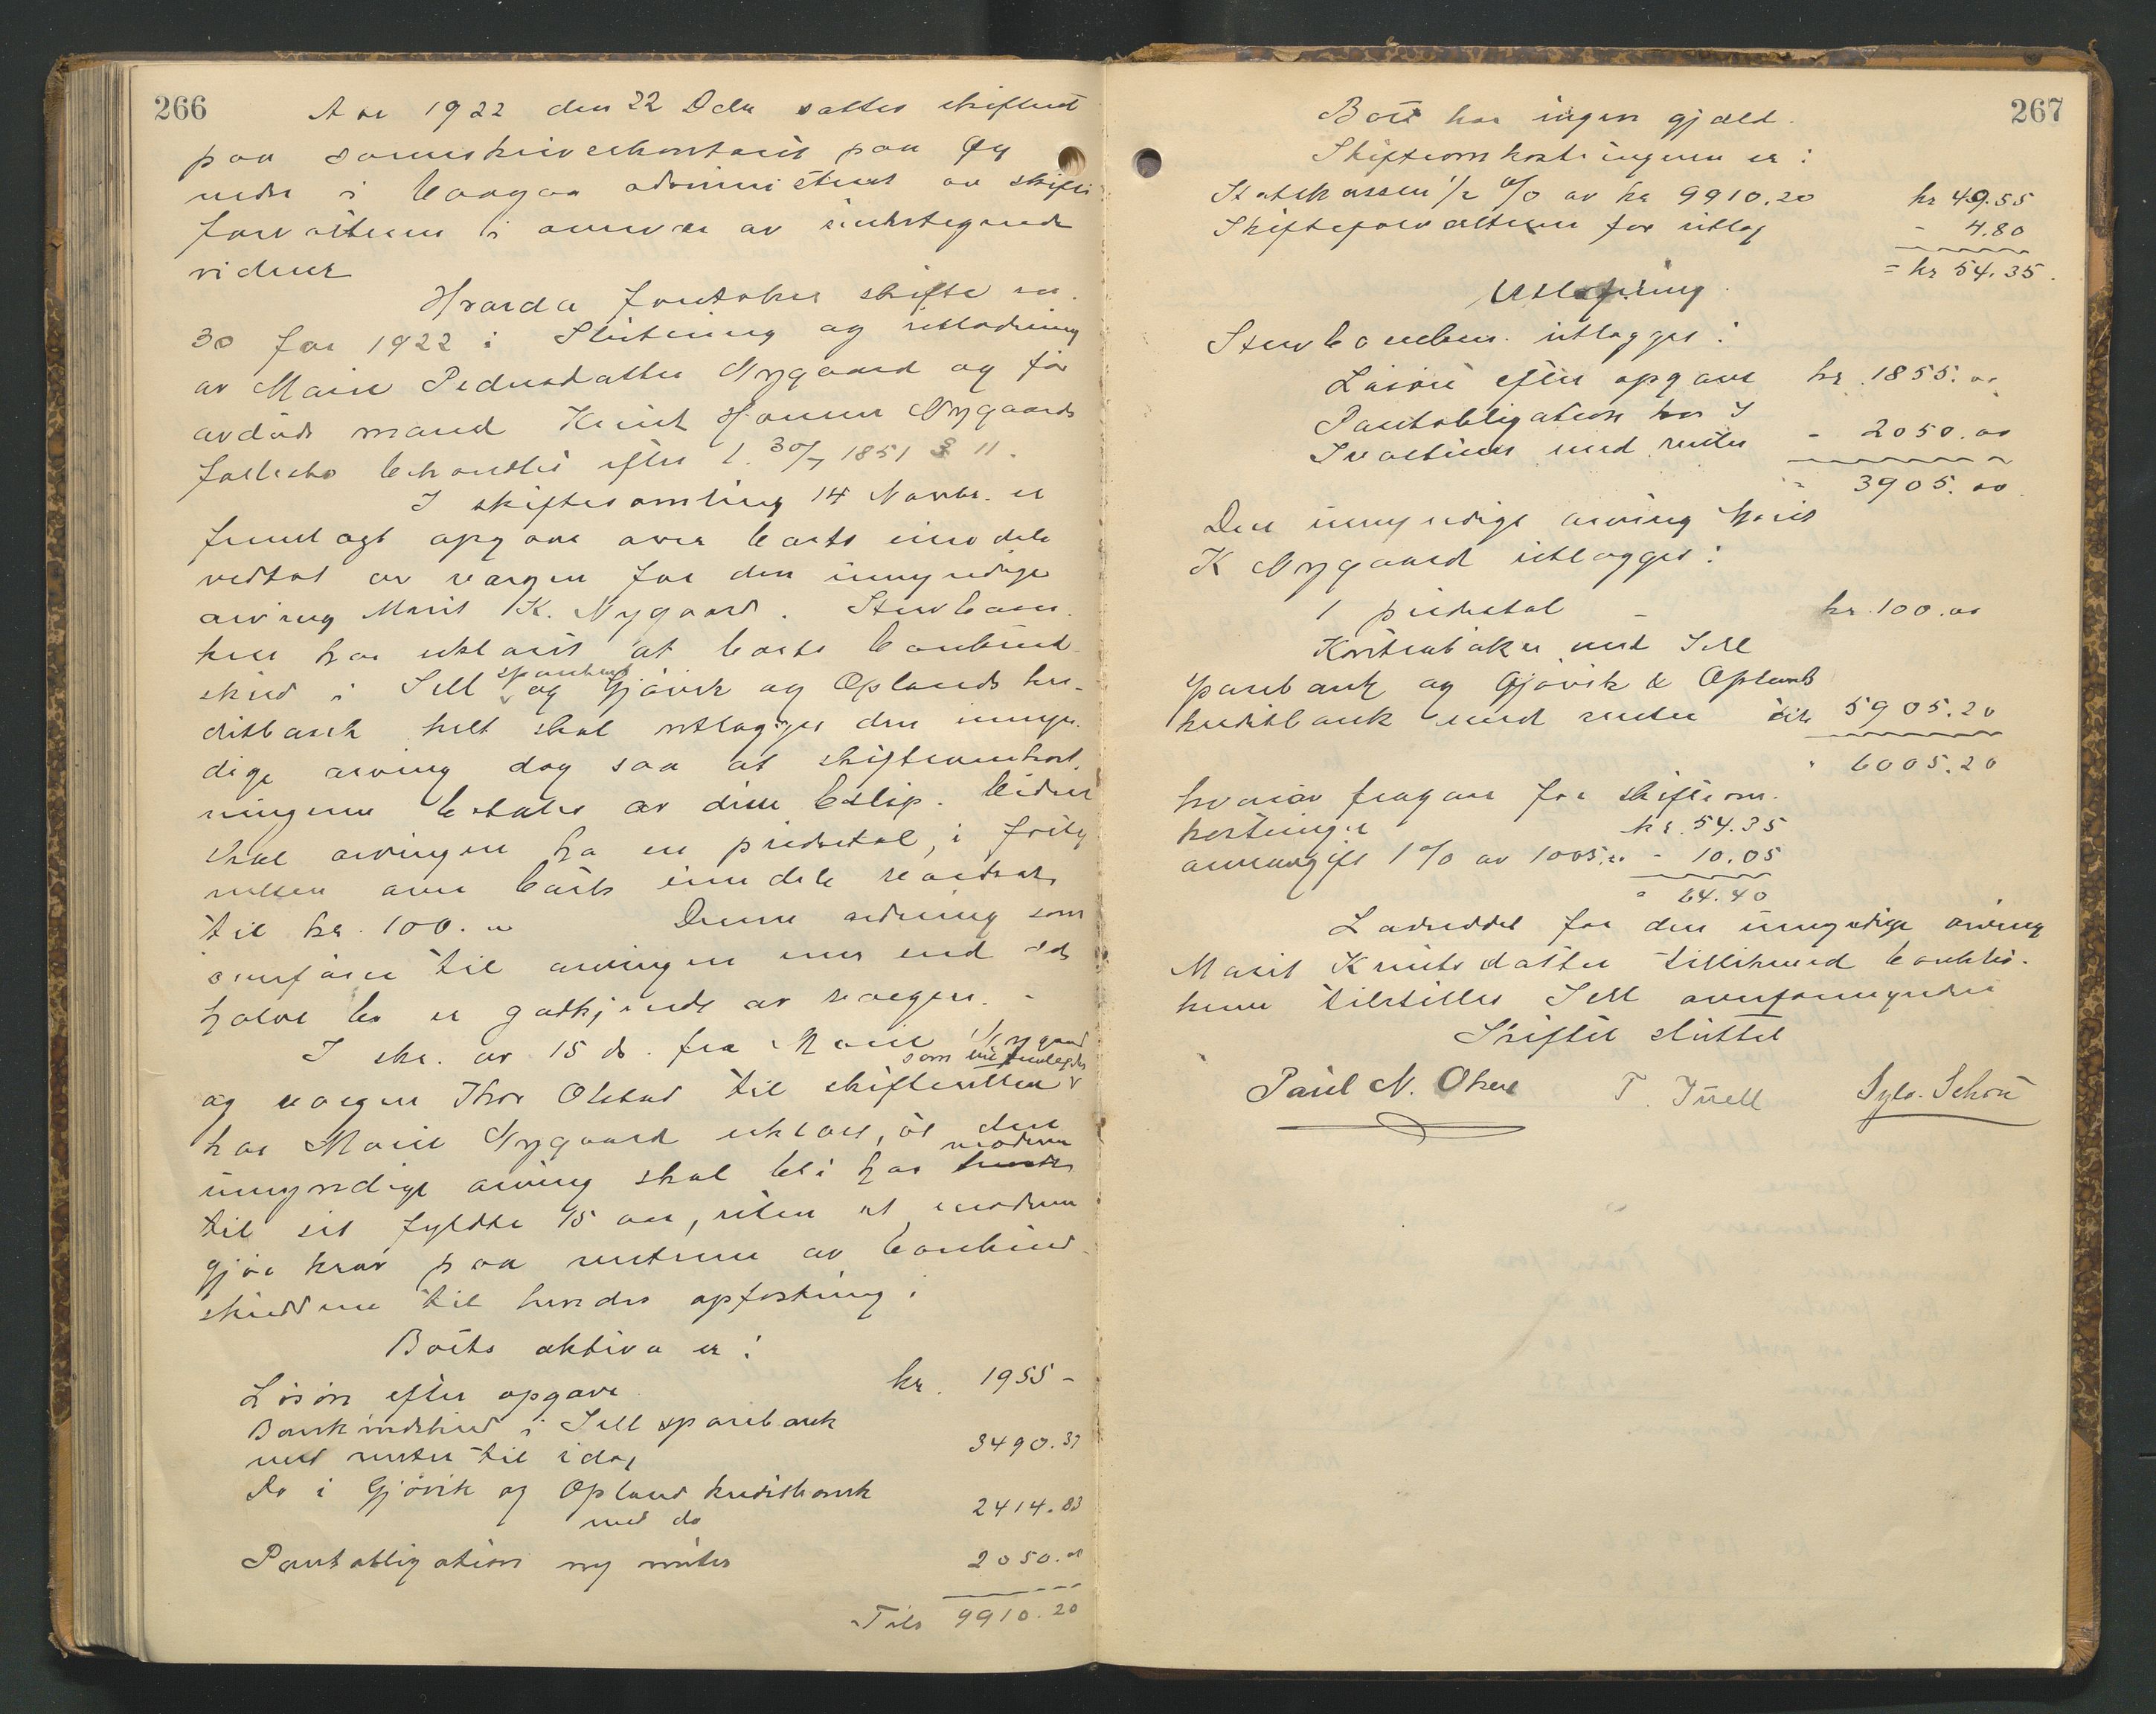 266
Aar 1922 den 22 Decbr sattes skifteret
paa sorenskriverkontoret paa Ry
nedre i Vaagaa administrert av skifte
forvalteren i overvær av undertegnede
vidner
Hvorda foretokes skifte nr.
30 for 1922: Slutning og utlodning
av Marie Pedersdatter Nygaard og før
avdøde mand Knut Hansen Nygaards
fællesbo behandlet efter l. 30/7 1851 § 11.
I skiftesamling 14 Novbr. er
fremlagt opgave over boets eiendele
vedtat av værgen for den umyndige
arving Marit K. Nygaard. Stervboen
ken har erklært at boets bankind-
skud i Sell sparebank og Gjøvik og Oplands kre-
ditbank helt skal utlægges den umyn
dige arving dog saa at skifteomkost
ningerne betales av dette beløp. Videre
skal arvingen ha en piedestal, i forteg
nelsen over boets eiendele værdsat
til kr. 100.00 Denne ordning som
overfører til arvingen mer end det
halve bo er godkjendt av værgen. -
I skr. av 15 ds. fra Marie Nygaard
og værgen Thor Olstad til skifteretten som
har Marie Nygaard erklært, at den
umyndige arving skal bli hos moderen
til sit fyldte 15 aar, uten at moderen
gjør krav paa renterne av bankind-
skuddene til hendes opfostring.
Boets aktiva er:
Løsøre efter opgave kr. 1955 -
Bankindskud i Sell sparebank
med renter til idag 3490.37
Do i Gjøvik og Opland kreditbank
med do 2414.83
Pantobligation og renter 2050.00
Tils 9910.20
267
Boet har ingen gjæld.
Skifteomkostningerne er:
Statskassen 1/2 % av kr 9910.20 kr 49.55
Skifteforvalteren for utlæg - 4.80
= kr 54.35.
Utlodning.
Stervboenken utlægges:
Løsøre efter opgave kr. 1855.00
Pantobligation hos I
med renter - 2050.00
3905.00
Den umyndige arving Marit
K Nygaard utlægges:
1 piedestal - kr. 100.00
Kontrabøker med Sell
sparebank og Gjøvik & Oplands
kreditbank med renter tils 5905.20
6005.20
hvorav fragaar for skifteom-
kostninger kr. 54.35
arveavgift 1 % av 1005.00 - 10.05
64.40
Lodseddel for den umyndige arving
Marit Knutsdatter tillikemed bankbø-
kene tilstilles Sell overformynderi
Skiftet sluttet
Paul N. Oksne T. Juell Sylv. Schou